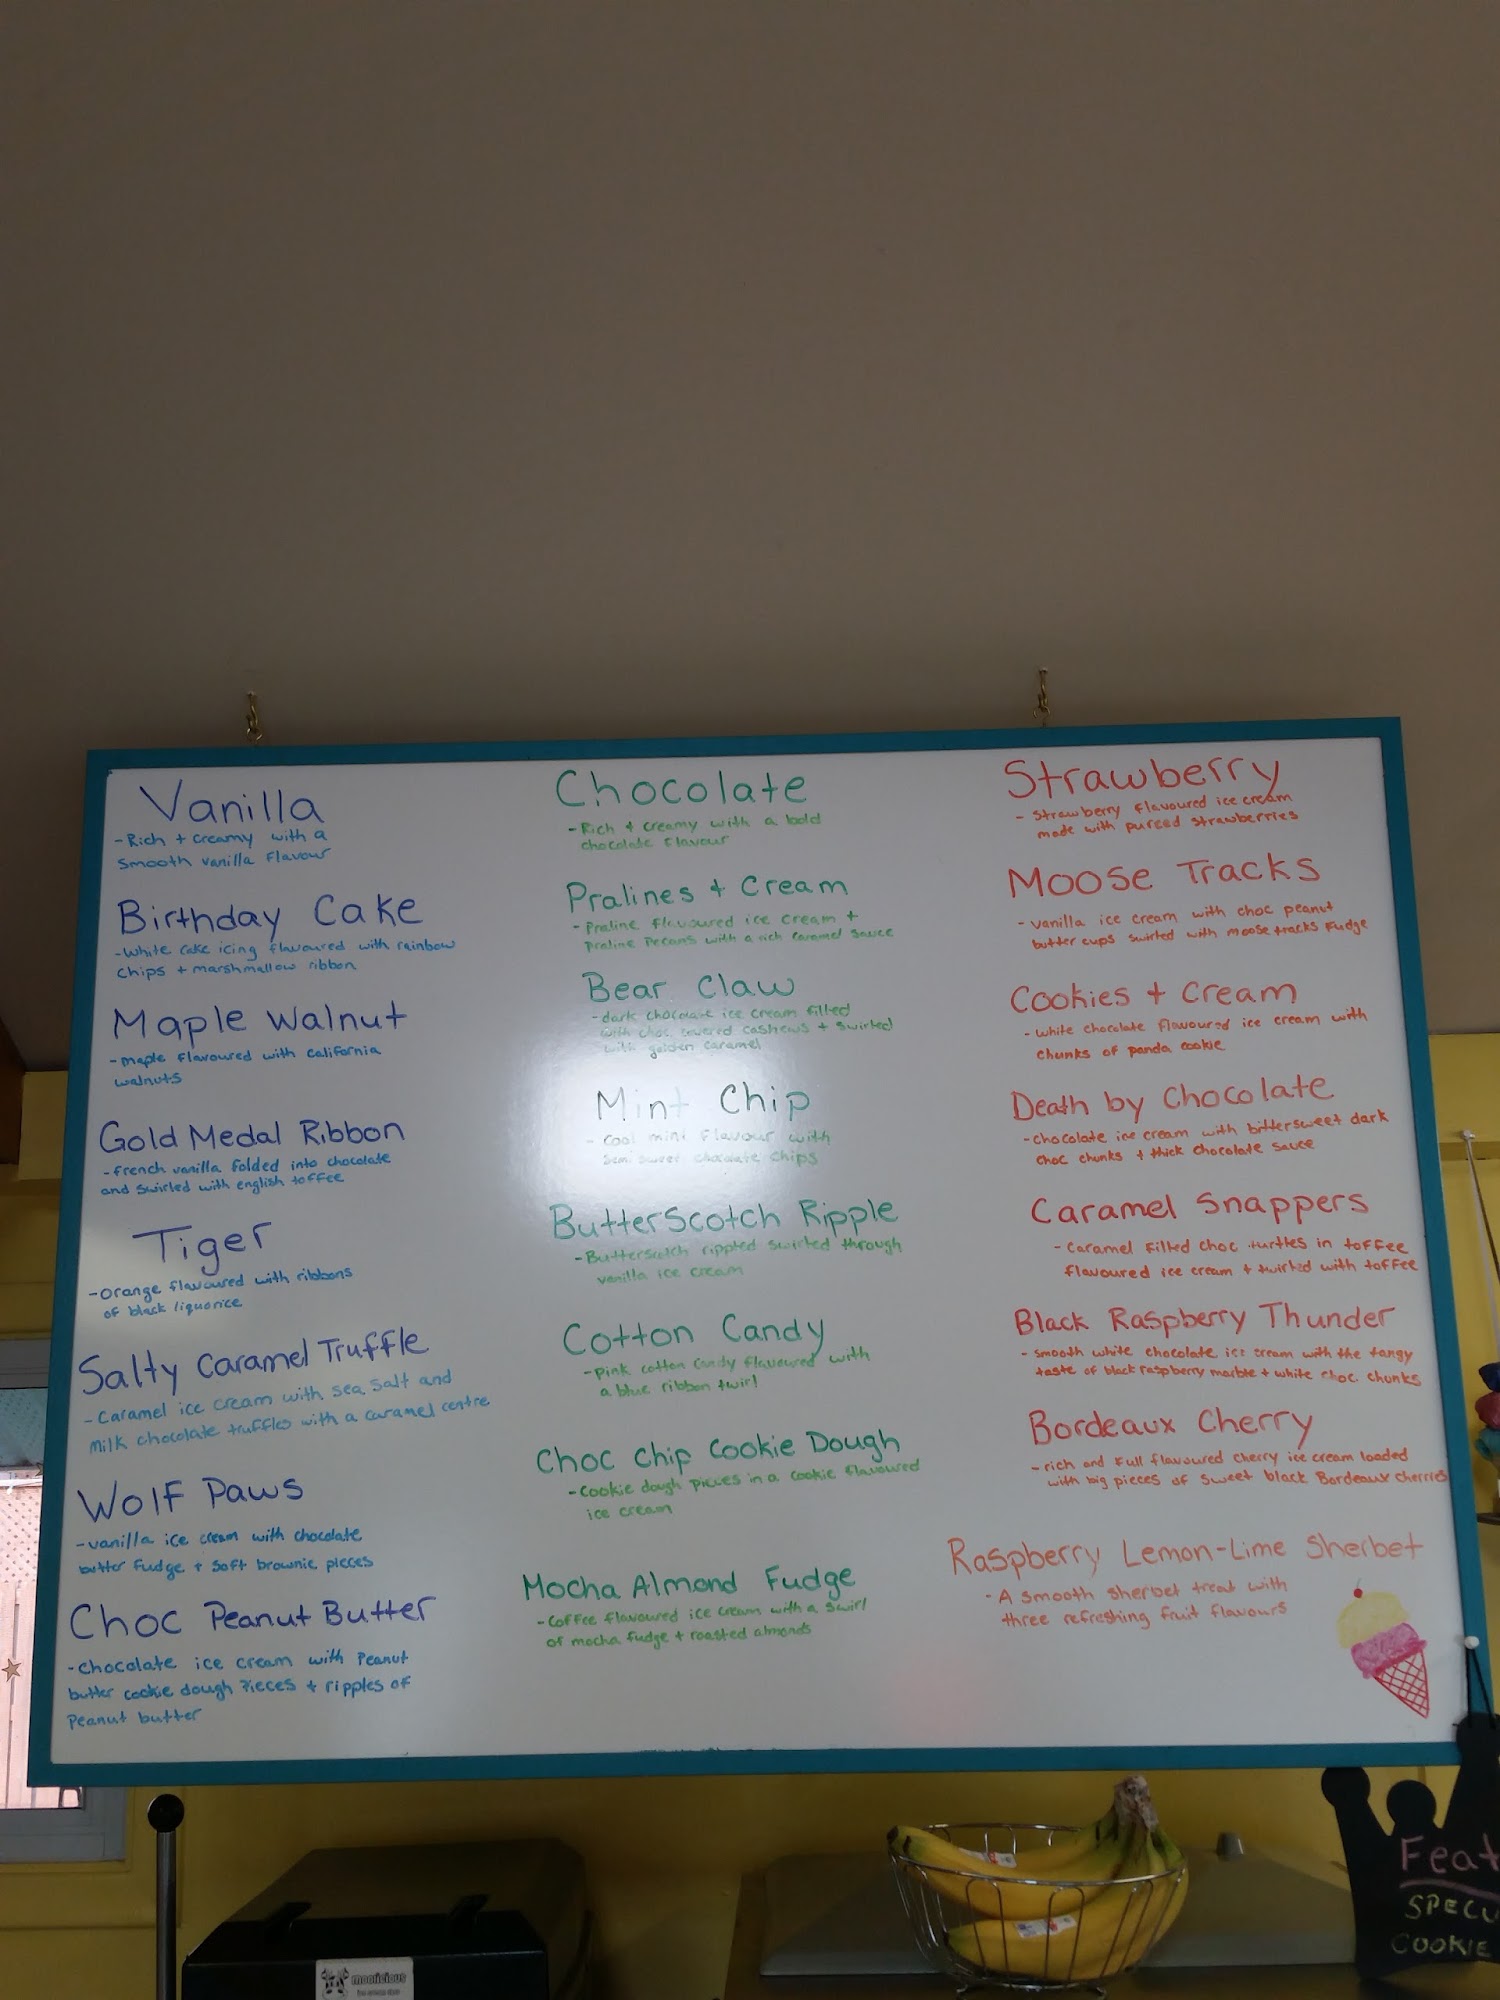 Vanilla
-Rich + creamy with a
smooth vanilla flavour
Birthday Cake
-White cake icing flavoured with rainbow
chips + marshmallow ribbon
Maple Walnut
-maple flavoured with california
walnuts
Gold Medal Ribbon
-french vanilla folded into chocolate
and swirled with english toffee
Tiger
-orange flavoured with ribbons
of black liquorice
Salty Caramel Truffle
-Caramel ice cream with sea salt and
milk chocolate truffles with a caramel centre
Wolf Paws
-vanilla ice cream with chocolate
butter fudge + soft brownie pieces
Choc Peanut Butter
-chocolate ice cream with Peanut
butter cookie dough Pieces + ripples of
Peanut butter
Chocolate
-Rich + creamy with a bold
chocolate flavour
Pralines + Cream
-Praline flavoured ice cream +
Praline Pecans with a rich Caramel Sauce
Bear Claw
-dark chocolate ice cream filled
with choc covered cashews + swirled
with golden caramel
Mint Chip
- Cool mint flavour with
semi sweet chocolate chips
ButterScotch Ripple
-Butterscotch rippled swirled through
vanilla ice cream
Cotton Candy
-pink cotton candy flavoured with
a blue ribbon twirl
Choc Chip Cookie Dough
-Cookie dough pieces in a cookie flavoured
ice cream
Mocha Almond Fudge
-Coffee flavoured ice cream with a swirl
of mocha fudge + roasted almonds
Strawberry
- Strawberry flavoured ice cream
made with pureed strawberries
Moose Tracks
-vanilla ice cream with choc peanut
butter cups swirled with moose tracks Fudge
Cookies + Cream
-white chocolate flavoured ice cream with
chunks of panda cookie
Death by Chocolate
-chocolate ice cream with bittersweet dark
choc chunks + thick chocolate sauce
Caramel Snappers
-Caramel filled choc turtles in toffee
flavoured ice cream + twirled with toffee
Black Raspberry Thunder
- smooth white chocolate ice cream with the tangy
taste of black raspberry marble + white choc chunks
Bordeaux Cherry
-rich and full flavoured cherry ice cream loaded
with big pieces of sweet black Bordeaux cherries
Raspberry Lemon-Lime Sherbet
-A smooth sherbet treat with
three refreshing fruit flavours
moolicious
ice cream
Feat
SPECU
COOKIE